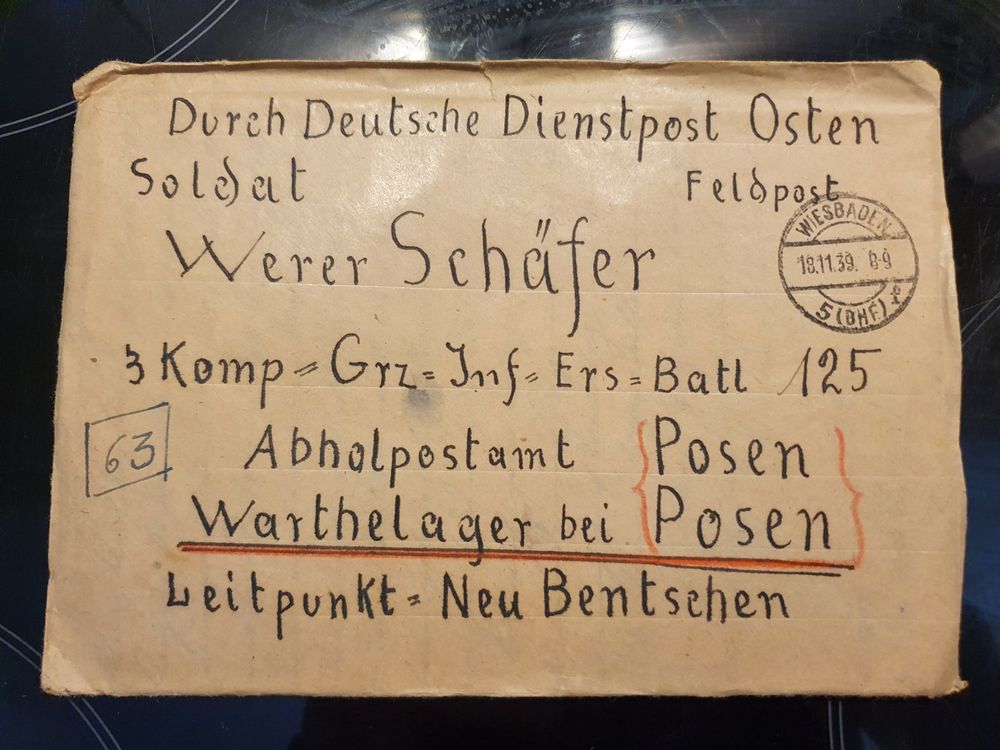 Durch Deutsche Dienstpost Osten
Soldat Feldpost
Werer Schäfer
WIESBADEN
18.11.39. 8-9
5 (BHF) f
3 Komp = Grz = Inf = Ers = Batl 125
63
Abholpostamt Posen
Warthelager bei Posen
Leitpunkt = Neu Bentschen